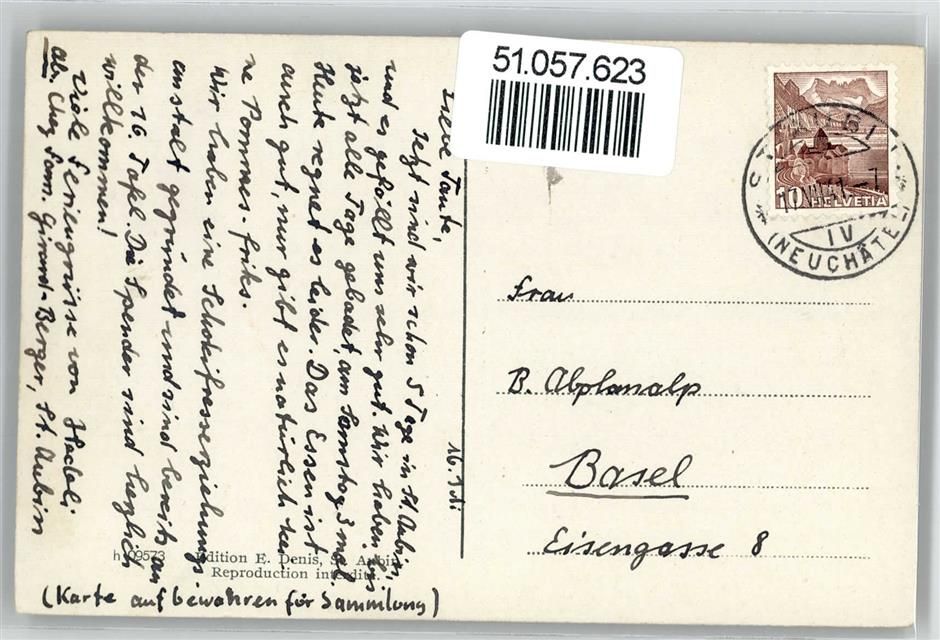 51.057.623
Liebe Tante,
Jetzt sind wir schon 5 Tage in St. Aubin,
und es gefällt uns sehr gut. Wir haben bis
jetzt alle Tage gebadet, am Samstag 3 mal.
Heute regnet es leider. Das Essen ist
auch gut, nur gibt es natürlich kei-
ne Pommes-frites.
Wir haben eine Schokifresserziehungs
anstalt gegründet und sind bereits an
der 16 Tafel. Die Spender sind herzlich
willkommen!
Viele Feriengrüsse von
ab. Chez Fam. Girard-Berger, St. Aubin
(Karte aufbewahren für Sammlung)
h 09573 Edition E. Denis, St. Aubin
Reproduction interdite.
10 HELVETIA
IV
(NEUCHÂTEL)
Frau
B. Abplanalp
Basel
Eisengasse 8